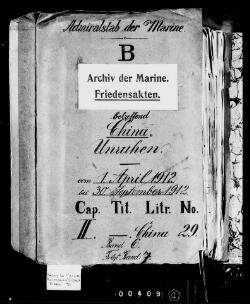 Admiralstab der Marine.
B
Archiv der Marine.
Friedensakten.
betreffend
China.
Unruhen.
vom 1. April 1912
bis 30. September 1912
Cap. Tit. Litr. No.
II. China 29
Band 6.
00409